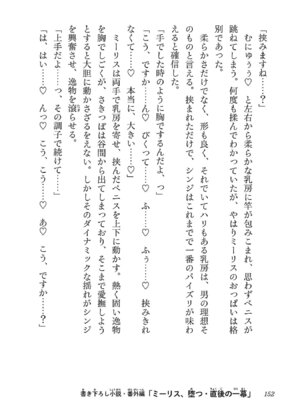 「挟みますね……?」
むにゅぅっ♡ と左右から柔らかな乳房に竿が包みこまれ、思わずペニスが
跳ねてしまう。何度も揉んでわかっていたが、やはりミーリスのおっぱいは格
別であった。
柔らかさだけでなく、形も良く、それでいてハリもある乳房は、男の理想そ
のものと言える。挟まれただけで、シンジはこれまでで一番のパイズリが味わ
えると確信した。
「手でした時のように胸でするんだよ、っ」
「こう、ですか……ん♡ びくって……♡ ふ……♡ ふぅ……♡ 挟みきれ
なくて……♡ これ、大きい……♡」
ミーリスは両手で乳房を寄せ、挟んだペニスを上下に動かす。熱く固い逸物
を胸でしごくが、さきっぽは谷間から出てしまっており、そこまで愛撫しよう
とすると大胆に動かさざるをえない。しかしそのダイナミックな揺れがシンジ
を興奮させ、逸物を滾らせる。
「上手だよ……っ、その調子で続けて……」
「は、はい……♡ んっ♡ こう……♡ あ♡ こう、ですか……?」
書き下ろし小説・番外編「ミーリス、堕つ・直後の一幕」
152